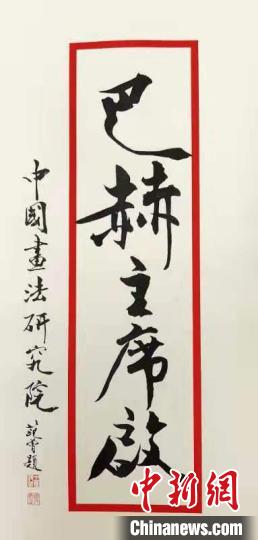 巴赫主席啟
中國畫法研究院
范曾題
中新網
Chinanews.com